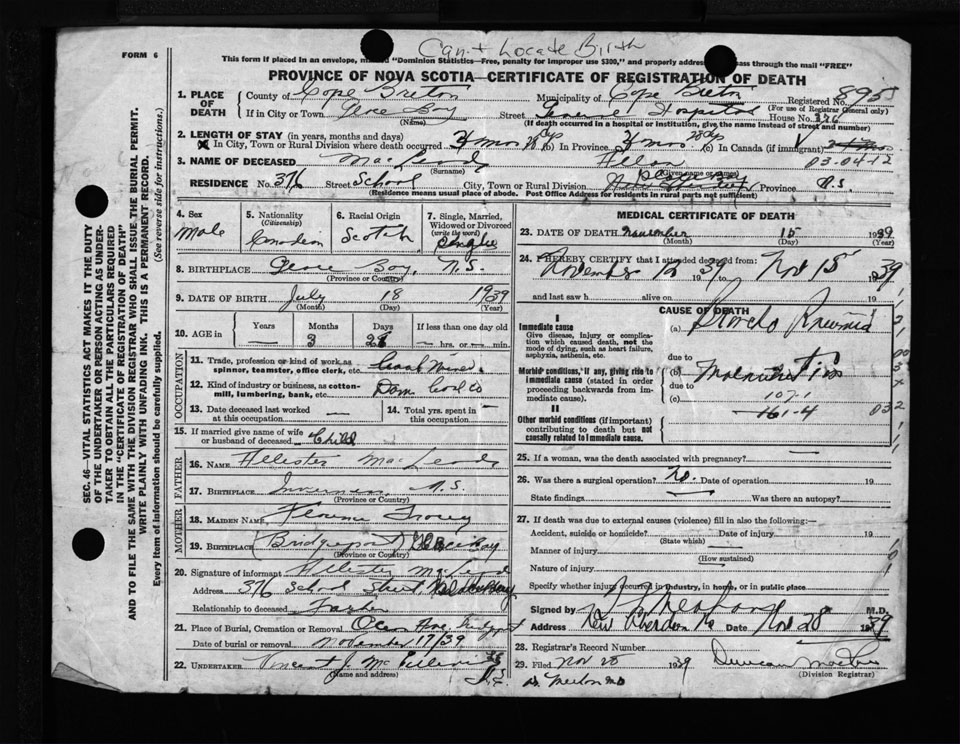 FORM 6
Can't Locate Birth
This form if placed in an envelope, "Dominion Statistics—Free, penalty for improper use $300," and properly pass through the mail "FREE"
PROVINCE OF NOVA SCOTIA—CERTIFICATE OF REGISTRATION OF DEATH
1. PLACE OF DEATH
County of Cape Breton Municipality of Cape Breton Registered No. 895
(For use of Registrar General only)
If in City or Town Glace Bay Street General Hospital House No.
(Name) (If death occurred in a hospital or institution, give the name instead of street and number)
2. LENGTH OF STAY (in years, months and days)
In City, Town or Rural Division where death occurred (b) In Province (c) In Canada (if immigrant)
3. NAME OF DECEASED MacLeod Allan 03-04-12
(Surname) (Given name or names)
RESIDENCE No. 376 Street School City, Town or Rural Division Province N.S.
(Residence means usual place of abode. Post Office Address for residents in rural parts not sufficient)
4. Sex Male
5. Nationality (Citizenship) Canadian
6. Racial Origin Scotch
7. Single, Married, Widowed or Divorced (write the word) Single
8. BIRTHPLACE Glace Bay, N.S.
(Province or Country)
9. DATE OF BIRTH July 18 1939
(Month) (Day) (Year)
10. AGE in Years — Months 3 Days 28 If less than one day old — hrs. or — min.
OCCUPATION
11. Trade, profession or kind of work as spinner, teamster, office clerk, etc.
12. Kind of industry or business, as cotton-mill, lumbering, bank, etc. Dom Coal Co
13. Date deceased last worked at this occupation —
14. Total yrs. spent in this occupation —
15. If married give name of wife or husband of deceased Child
FATHER
16. Name Allister MacLeod
17. Birthplace Inverness, N.S.
(Province or Country)
MOTHER
18. Maiden Name Florence
19. Birthplace (Bridgeport) Glace Bay
(Province or Country)
20. Signature of informant Allister MacLeod
Address 376 School Street, Glace Bay
Relationship to deceased Father
21. Place of Burial, Cremation or Removal Bridgeport
Date of burial or removal November 17/39
22. UNDERTAKER Vincent J.
(Name and address)
MEDICAL CERTIFICATE OF DEATH
23. DATE OF DEATH November 15 1939
(Month) (Day) (Year)
24. I HEREBY CERTIFY that I attended deceased from:
November 12 1939 to Nov 15 1939
and last saw h alive on 19
CAUSE OF DEATH
I
Immediate cause
Give disease, injury or complication which caused death, not the mode of dying, such as heart failure, asphyxia, asthenia, etc.
(a) Broncho Pneumonia
due to
Morbid conditions, if any, giving rise to immediate cause (stated in order proceeding backwards from immediate cause).
(b) Malnutrition
due to
(c) 107-1
161-4
II
Other morbid conditions (if important) contributing to death but not causally related to immediate cause.
25. If a woman, was the death associated with pregnancy? —
26. Was there a surgical operation? no. Date of operation 19
State findings — Was there an autopsy?
27. If death was due to external causes (violence) fill in also the following:—
Accident, suicide or homicide? Date of injury 19
(State which)
Manner of injury
(How sustained)
Nature of injury
Specify whether injury occurred in industry, in home, or in public place
Signed by M.D.
Address New Aberdeen Date Nov 28 1939
28. Registrar's Record Number
29. Filed Nov 28 1939 Duncan
(Division Registrar)
SEC. 46—VITAL STATISTICS ACT MAKES IT THE DUTY
OF THE UNDERTAKER OR PERSON ACTING AS UNDER-
TAKER TO OBTAIN ALL THE PARTICULARS REQUIRED
IN THE "CERTIFICATE OF REGISTRATION OF DEATH"
AND TO FILE THE SAME WITH THE DIVISION REGISTRAR WHO SHALL ISSUE THE BURIAL PERMIT.
WRITE PLAINLY WITH UNFADING INK. THIS IS A PERMANENT RECORD.
Every item of Information should be carefully supplied. (See reverse side for instructions.)